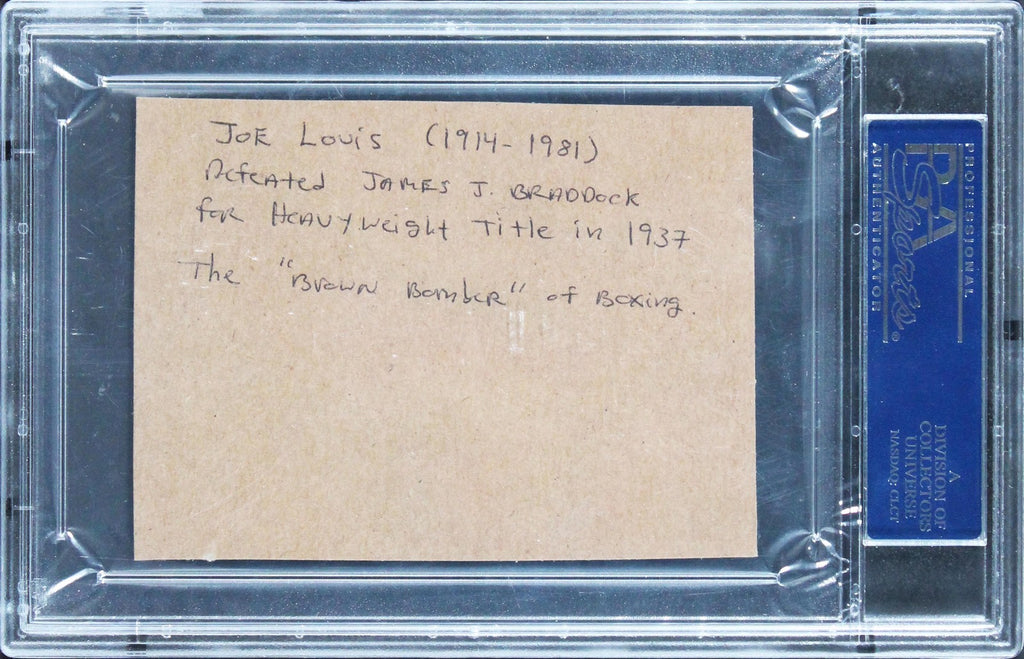 JOE LOUIS (1914-1981)
Defeated JAMES J. BRADDOCK
for HEAVYweight Title in 1937
The "Brown Bomber" of Boxing.
PROFESSIONAL
PSA
Sports
AUTHENTICATOR
A
DIVISION OF
COLLECTORS
UNIVERSE
NASDAQ: CLCT